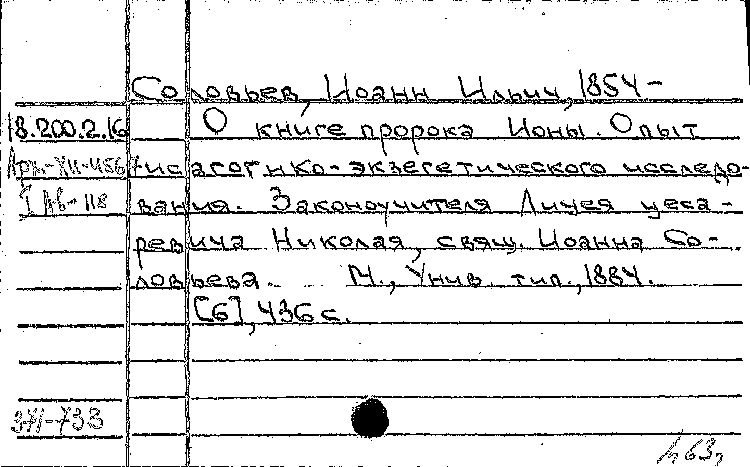 Соловьев, Иоанн Ильич, 1854-
18.200.2.16 О книге пророка Ионы. Опыт
исагогико-экзегетического исследо-
I Ав-118 вания. Законоучителя Лицея цеса-
ревича Николая, свящ. Иоанна Со-
ловьева. М., Унив. тип., 1884.
[6], 436 с.
371-733